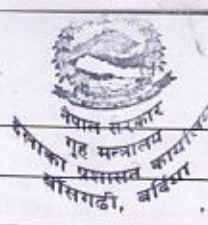 नेपाल सरकार
गृह मन्त्रालय
इलाका प्रशासन कार्यालय
बाँसगढी, बर्दिया